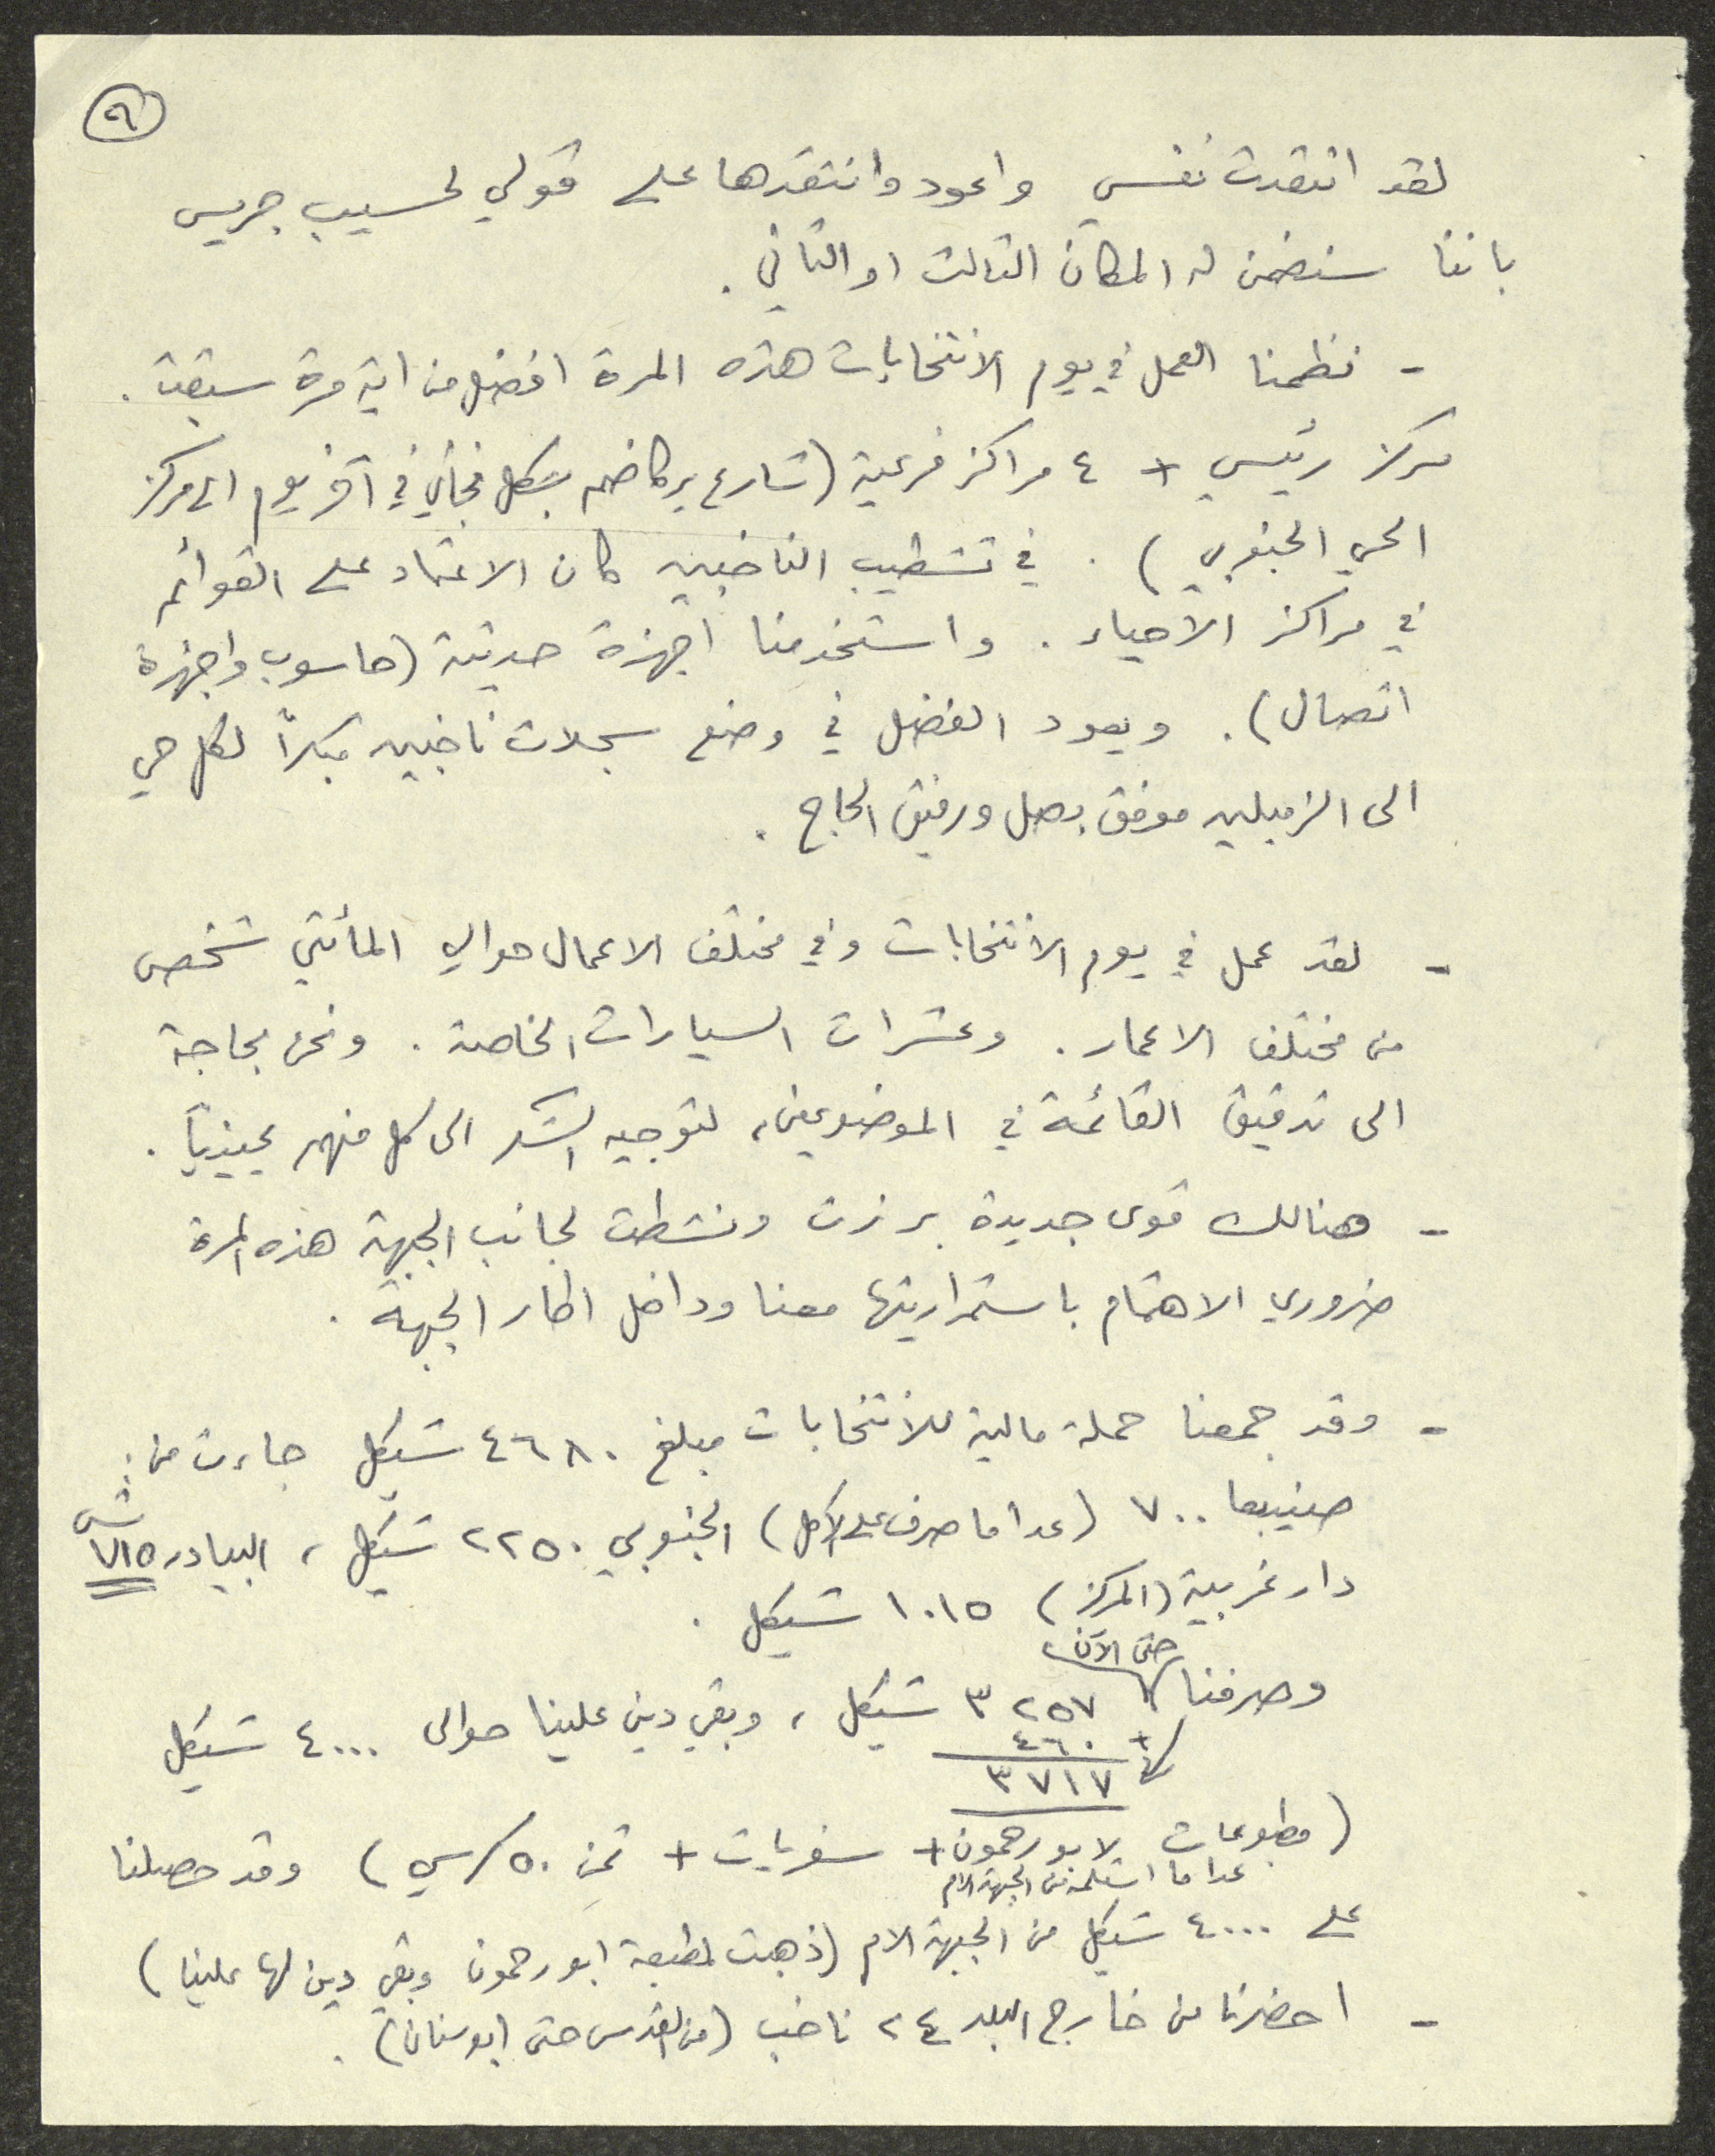 ٩
لقد انتقدت نفسي واعود وانتقدها على قولي لحسيب جريس
باننا سنضمن له المكان الثالث او الثاني .
- نظمنا العمل في يوم الانتخابات هذه المرة افضل من اية مرة سبقت .
مركز رئيسي + ٤ مراكز فرعية (شارع يركا ضم بشكل فجائي في آخر يوم الى مركز
الحي الجنوبي) . في تشطيب الناخبين كان الاعتماد على القوائم
في مراكز الاحياء . واستخدمنا اجهزة حديثة (حاسوب واجهزة
اتصال) . ويعود الفضل في وضع سجلات ناخبين مبكراً لكل حي
الى الزميلين موفق بصل ورفيق الحاج .
- لقد عمل في يوم الانتخابات وفي مختلف الاعمال حوالي المأتي شخص
من مختلف الاعمار . وعشرات السيارات الخاصة . ونحن بحاجة
الى تدقيق القائمة في الموضوعين، لتوجيه الشكر الى كل منهم عينياً .
- هنالك قوى جديدة برزت ونشطت لجانب الجبهة هذه المرة
ضروري الاهتمام باستمراريتها معنا وداخل اطار الجبهة .
- وقد جمعنا حملة مالية للانتخابات مبلغ ٤٦٨٠ شيكل جاءت من :
صنيبعا ٧٠٠ (عدا ما صرف على الاكل) الجنوبي ٢٢٥٠ شيكل ، البيادر ٧١٥ ش
دار غربية (المركز) ١٠١٥ شيكل .
حتى الآن
وصرفنا ٣٢٥٧ شيكل ، وبقي دين علينا حوالى ٤٠٠٠ شيكل
+ ٤٦٠
٣٧١٧
(مطبوعات لابو رحمون + سفريات + ثمن ٥٠ / سي) وقد حصلنا
عدا ما استلمه من الجبهة الام
على ٤٠٠٠ شيكل من الجبهة الام (ذهبت لمطبعة ابو رحمون وبقي دين لها علينا)
- احضرنا من خارج البلد ٢٤ ناخب (من القدس حتى ابو سنان) .